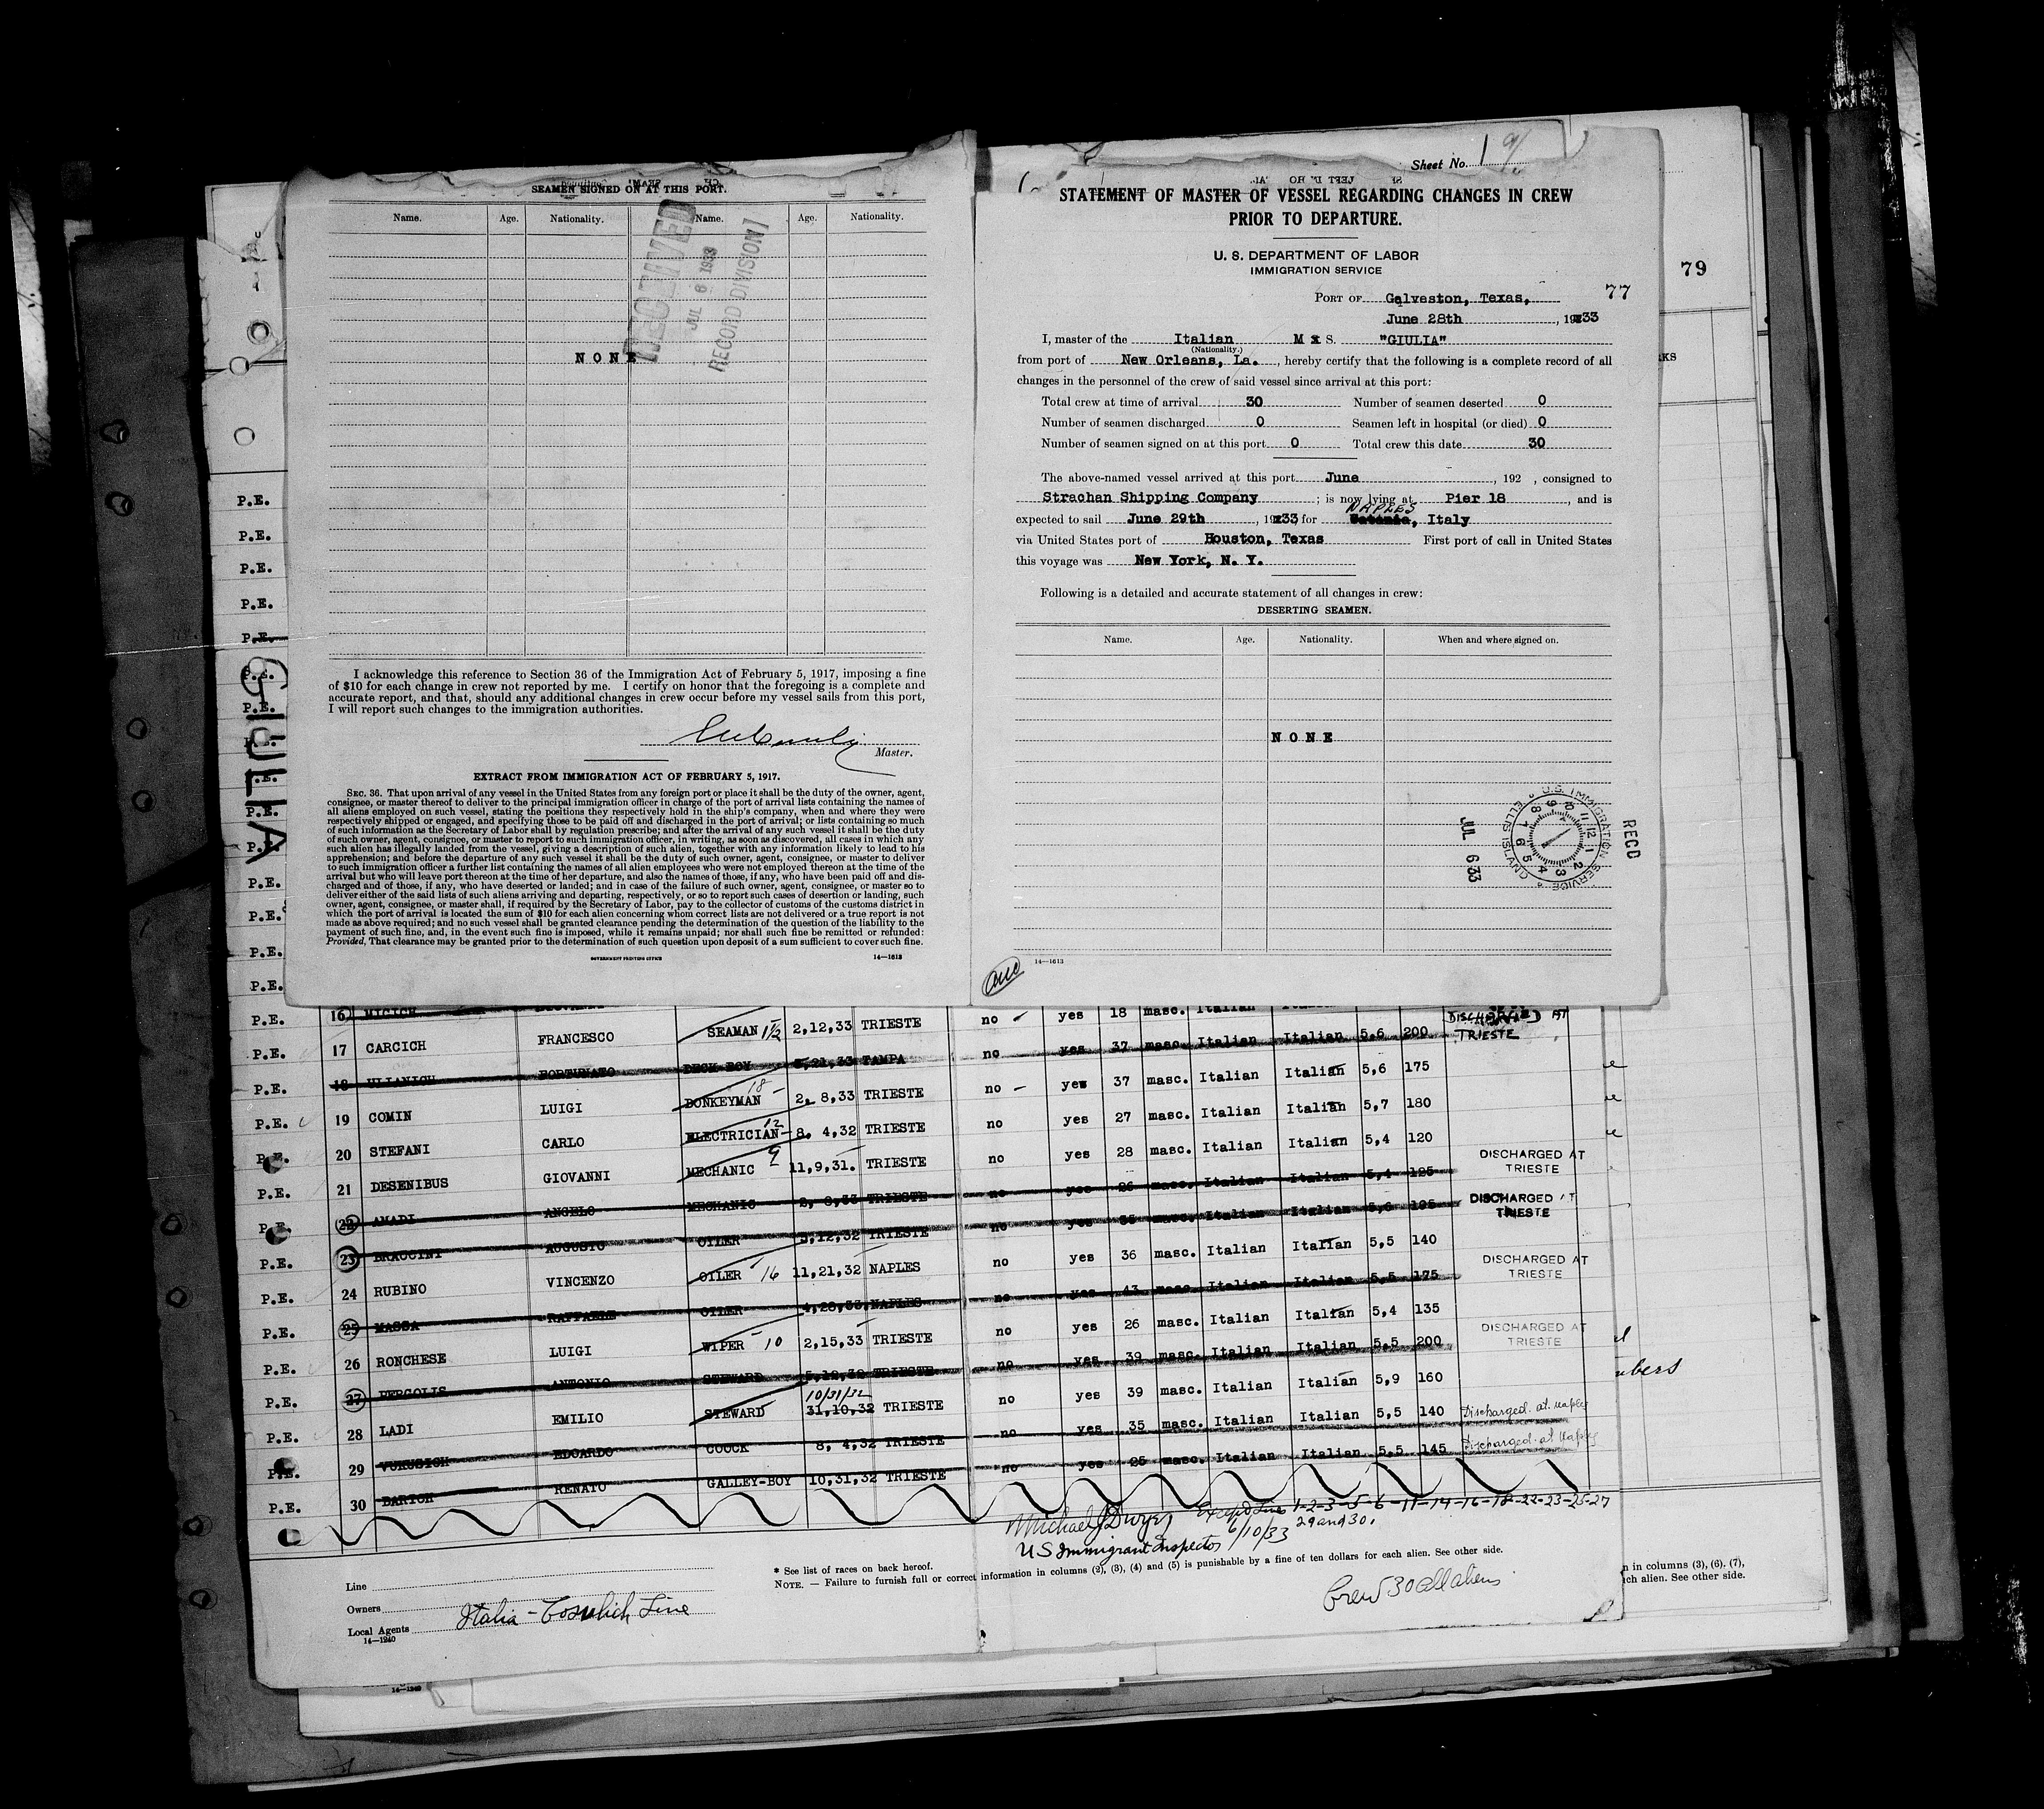 SEAMEN SIGNED ON AT THIS PORT.
Name. Age. Nationality. Name. Age. Nationality.
RECEIVED
JUL 6 1933
RECORD DIVISION
NONE
I acknowledge this reference to Section 36 of the Immigration Act of February 5, 1917, imposing a fine
of $10 for each change in crew not reported by me. I certify on honor that the foregoing is a complete and
accurate report, and that, should any additional changes in crew occur before my vessel sails from this port,
I will report such changes to the immigration authorities.
Master.
EXTRACT FROM IMMIGRATION ACT OF FEBRUARY 5, 1917.
SEC. 36. That upon arrival of any vessel in the United States from any foreign port or place it shall be the duty of the owner, agent,
consignee, or master thereof to deliver to the principal immigration officer in charge of the port of arrival lists containing the names of
all aliens employed on such vessel, stating the positions they respectively hold in the ship's company, when and where they were
respectively shipped or engaged, and specifying those to be paid off and discharged in the port of arrival; or lists containing so much
of such information as the Secretary of Labor shall by regulation prescribe; and after the arrival of any such vessel it shall be the duty
of such owner, agent, consignee, or master to report to such immigration officer, in writing, as soon as discovered, all cases in which any
such alien has illegally landed from the vessel, giving a description of such alien, together with any information likely to lead to his
apprehension; and before the departure of any such vessel it shall be the duty of such owner, agent, consignee, or master to deliver
to such immigration officer a further list containing the names of all alien employees who were not employed thereon at the time of the
arrival but who will leave port thereon at the time of her departure, and also the names of those, if any, who have been paid off and dis-
charged and of those, if any, who have deserted or landed; and in case of the failure of such owner, agent, consignee, or master so to
deliver either of the said lists of such aliens arriving and departing, respectively, or so to report such cases of desertion or landing, such
owner, agent, consignee, or master shall, if required by the Secretary of Labor, pay to the collector of customs of the customs district in
which the port of arrival is located the sum of $10 for each alien concerning whom correct lists are not delivered or a true report is not
made as above required; and no such vessel shall be granted clearance pending the determination of the question of the liability to the
payment of such fine, and, in the event such fine is imposed, while it remains unpaid; nor shall such fine be remitted or refunded:
Provided, That clearance may be granted prior to the determination of such question upon deposit of a sum sufficient to cover such fine.
GOVERNMENT PRINTING OFFICE 14—1613
Sheet No. 1
STATEMENT OF MASTER OF VESSEL REGARDING CHANGES IN CREW
PRIOR TO DEPARTURE.
U. S. DEPARTMENT OF LABOR
IMMIGRATION SERVICE
79
77
PORT OF Galveston, Texas,
June 28th, 1933
I, master of the Italian M S. "GIULIA"
(Nationality.)
from port of New Orleans, La., hereby certify that the following is a complete record of all
changes in the personnel of the crew of said vessel since arrival at this port:
Total crew at time of arrival 30 Number of seamen deserted 0
Number of seamen discharged 0 Seamen left in hospital (or died) 0
Number of seamen signed on at this port 0 Total crew this date 30
The above-named vessel arrived at this port June , 192 , consigned to
Strachan Shipping Company ; is now lying at Pier 18 , and is
NAPLES
expected to sail June 29th , 1933 for , Italy
via United States port of Houston, Texas First port of call in United States
this voyage was New York, N. Y.
Following is a detailed and accurate statement of all changes in crew:
DESERTING SEAMEN.
Name. Age. Nationality. When and where signed on.
NONE
REC'D
U.S. IMMIGRATION SERVICE ELLIS ISLAND
JUL 6 33
14—1613
GIULIA
P.E. 16 MICICH
P.E. 17 CARCICH FRANCESCO SEAMAN 2,12,33 TRIESTE no yes 18 masc. Italian
DISCHARGED AT TRIESTE
P.E. 18 ULIANICH FORTUNATO DECK BOY 5,21,33 TAMPA no yes 37 masc. Italian Italian 5,6 200
P.E. 19 COMIN LUIGI DONKEYMAN 18 2, 8,33 TRIESTE no yes 37 masc. Italian Italian 5,6 175
P.E. 20 STEFANI CARLO ELECTRICIAN 12 8, 4,32 TRIESTE no yes 27 masc. Italian Italian 5,7 180
P.E. 21 DESENIBUS GIOVANNI MECHANIC 9 11,9,31. TRIESTE no yes 28 masc. Italian Italian 5,4 120
P.E. 22 AMADI ANGELO MECHANIC 2, 8,33 TRIESTE no yes 26 masc. Italian Italian 5,4 125 DISCHARGED AT TRIESTE
P.E. 23 BRACCINI AUGUSTO OILER 5,12,32 TRIESTE no yes 35 masc. Italian Italian 5,6 195 DISCHARGED AT TRIESTE
P.E. 24 RUBINO VINCENZO OILER 16 11,21,32 NAPLES no yes 36 masc. Italian Italian 5,5 140
P.E. 25 MASSA RAFFAELE OILER 4,28,33, NAPLES no yes 43 masc. Italian Italian 5,5 175 DISCHARGED AT TRIESTE
P.E. 26 RONCHESE LUIGI WIPER 10 2,15,33 TRIESTE no yes 26 masc. Italian Italian 5,4 135
P.E. 27 PERGOLIS ANTONIO STEWARD 5,12,32 TRIESTE no yes 39 masc. Italian Italian 5,5 200 DISCHARGED AT TRIESTE
10/31/32
P.E. 28 LADI EMILIO STEWARD 31,10,32 TRIESTE no yes 39 masc. Italian Italian 5,9 160
P.E. 29 VURUSICH EDOARDO COOCK 8, 4,32 TRIESTE no yes 35 masc. Italian Italian 5,5 140 Discharged at Naples
P.E. 30 BARTOH RENATO GALLEY-BOY 10,31,32 TRIESTE no yes 25 masc. Italian Italian 5,5 145 Discharged at Naples
Michael J Dwyer Except Line 1-2-3-5-6-11-14-16-18-22-23-25-27
US Immigrant Inspector 6/10/33 29 and 30.
* See list of races on back hereof.
NOTE. — Failure to furnish full or correct information in columns (2), (3), (4) and (5) is punishable by a fine of ten dollars for each alien. See other side.
n in columns (3), (6). (7),
ch alien. See other side.
Line
Owners
Local Agents Italia - Cosulich Line
14—1240
Crew 30 all aliens
14—1240